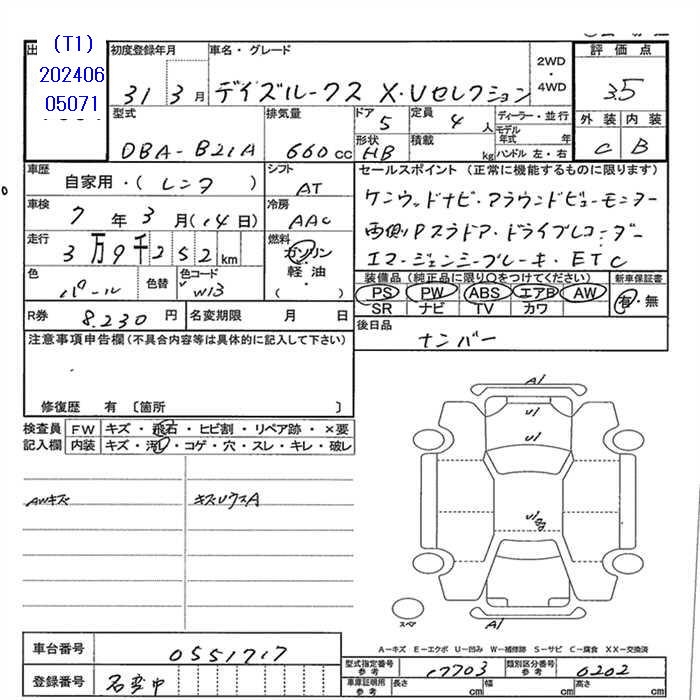 出 (T1)
202406
05071
初度登録年月
31 3 月
車名・グレード
デイズルークス X・Vセレクション
2WD
・
4WD
評価点
3.5
外装 内装
C B
型式
DBA-B21A
排気量
660 cc
ドア 5
定員 4 人
ディーラー・並行
モデル年式 年
形状 HB
積載 kg
ハンドル 左・右
車歴
自家用・(レンタ)
シフト
AT
車検
7 年 3 月 (14日)
冷房
AAC
走行
3万9千252 km
燃料
ガソリン
軽油・
( )
色
パール
色替
色コード
W13
R券 8.230 円
名変期限 月 日
セールスポイント (正常に機能するものに限ります)
ケンウッドナビ・アラウンドビューモニター
両側Pスラドア・ドライブレコーダー
エマージェンシーブレーキ・ETC
装備品 (純正品に限り○をつけてください)
新車保証書
PS PW ABS エアB AW
SR ナビ TV カワ
有・無
後日品
ナンバー
注意事項申告欄(不具合内容等は具体的に記入して下さい)
修復歴 有 〔箇所 〕
検査員 FW キズ・飛石・ヒビ割・リペア跡・×要
記入欄 内装 キズ・汚レ・コゲ・穴・スレ・キレ・破レ
AWキズ
キズUウスA
A1
U1
U1
U1
A1
スペア
A-キズ E-エクボ U-凹み W-補修跡 S-サビ C-腐食 XX-交換済
車台番号 0551717
登録番号 名変中
型式指定番号 参考 17703
類別区分番号 参考 0202
車庫証明用 参考 長さ cm 幅 cm 高さ cm